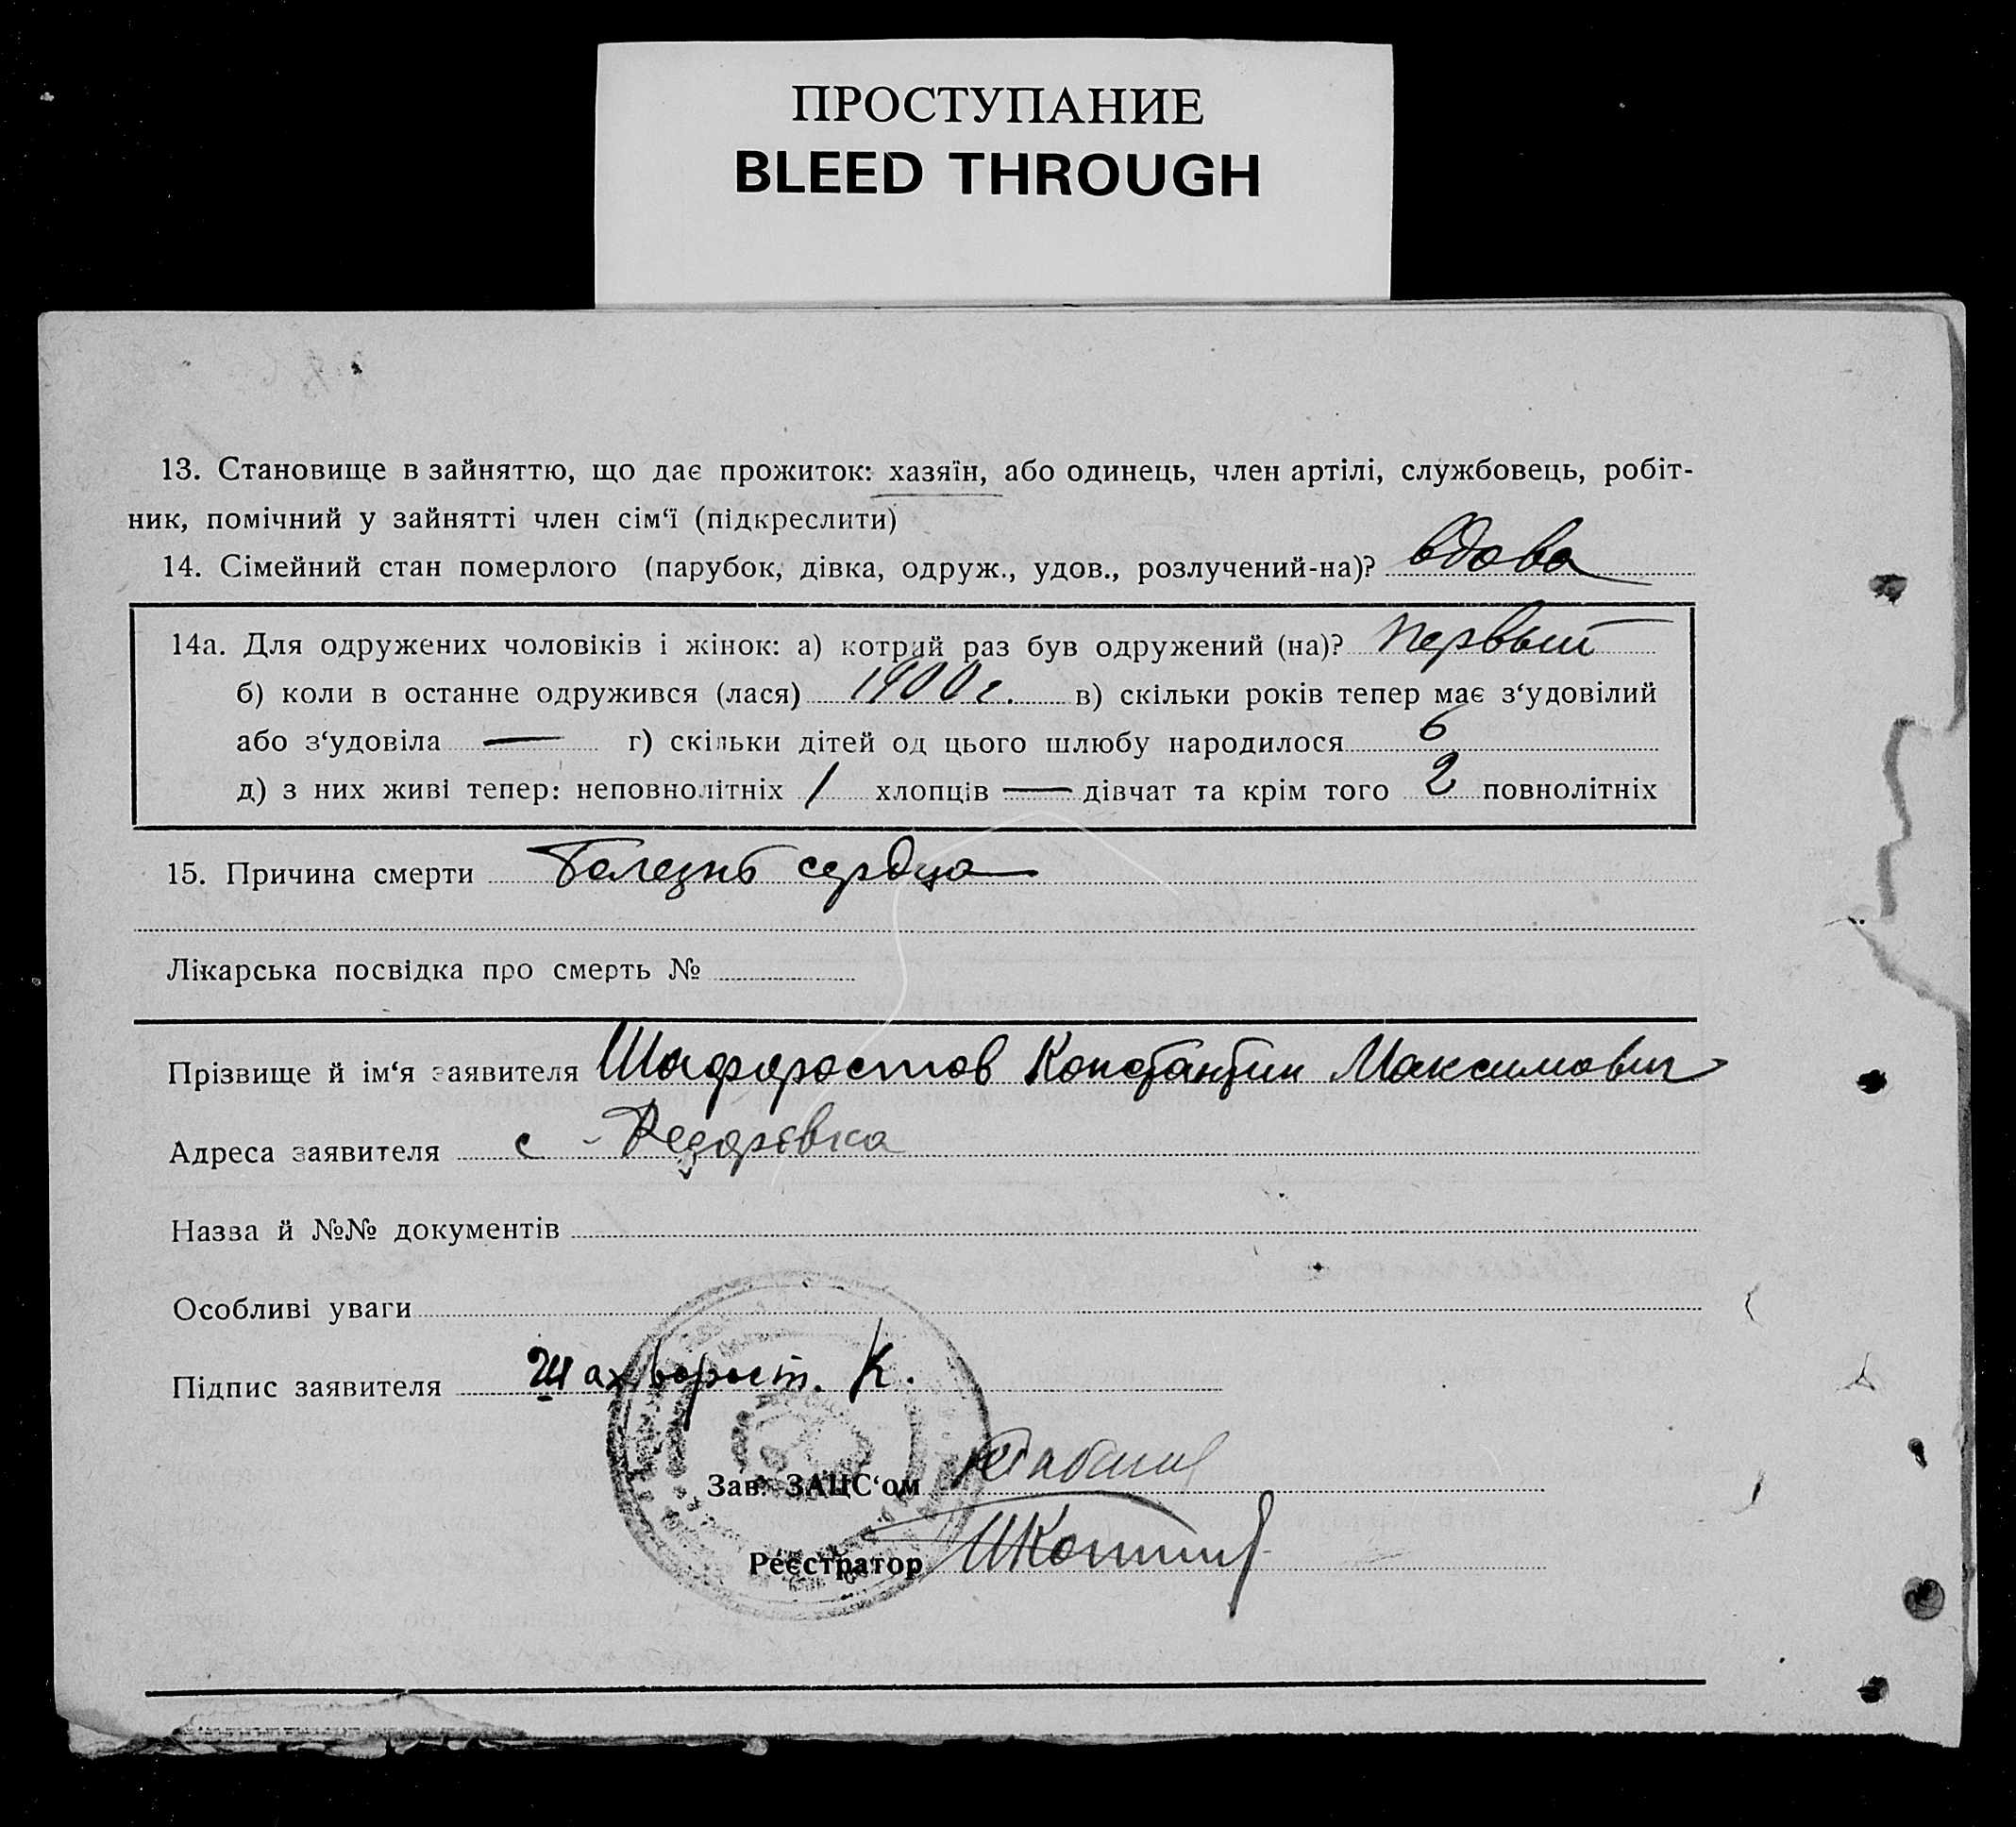 ПРОСТУПАНИЕ
BLEED THROUGH
13. Становище в зайняттю, що дає прожиток: хазяїн, або одинець, член артілі, службовець, робіт-
ник, помічний у зайнятті член сім‘ї (підкреслити)
14. Сімейний стан померлого (парубок, дівка, одруж., удов., розлучений-на)? вдова
14а. Для одружених чоловіків і жінок: а) котрий раз був одружений (на)? первый
б) коли в останне одружився (лася) 1900 г. в) скільки років тепер має з‘удовілий
або з‘удовіла — г) скільки дітей од цього шлюбу народилося 6
д) з них живі тепер: неповнолітніх 1 хлопців — дівчат та крім того 2 повнолітніх
15. Причина смерти Болезнь сердца
Лікарська посвідка про смерть №
Прізвище й ім‘я заявителя Шафоростов Константин Максимович
Адреса заявителя с - Федоровка
Назва й №№ документів
Особливі уваги
Підпис заявителя Шахворост. К.
Зав. ЗАЦС‘ом
Реєстратор